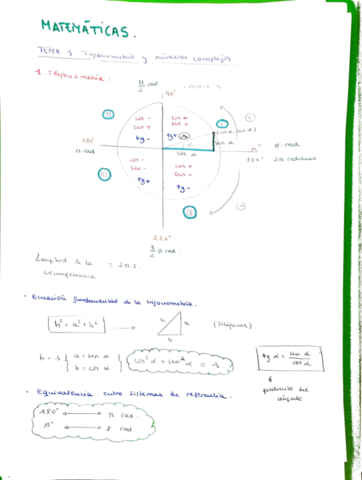 MATEMÁTICAS.
TEMA 1. Trigonometría y números complejos
1. Trigonometría.
π/2 rad
90°
radio = 1
cos -
sen +
tg -
cos +
sen +
tg +
(cos α, sen α)
sen α
cos α
180°
π rad
0° 0 rad
360° 2π radianes
cos -
sen -
tg +
cos +
sen -
tg -
270°
3/2 π rad.
Longitud de la circunferencia = 2π r.
· Ecuación fundamental de la trigonometría.
h² = a² + b²
h
a
b
(Pitágoras)
h = 1 { a = sen α
b = cos α
cos² α + sen² α = 1
tg α = sen α / cos α
pendiente del ángulo.
· Equivalencia entre sistemas de referencia
180° ⟷ π rad.
rad.